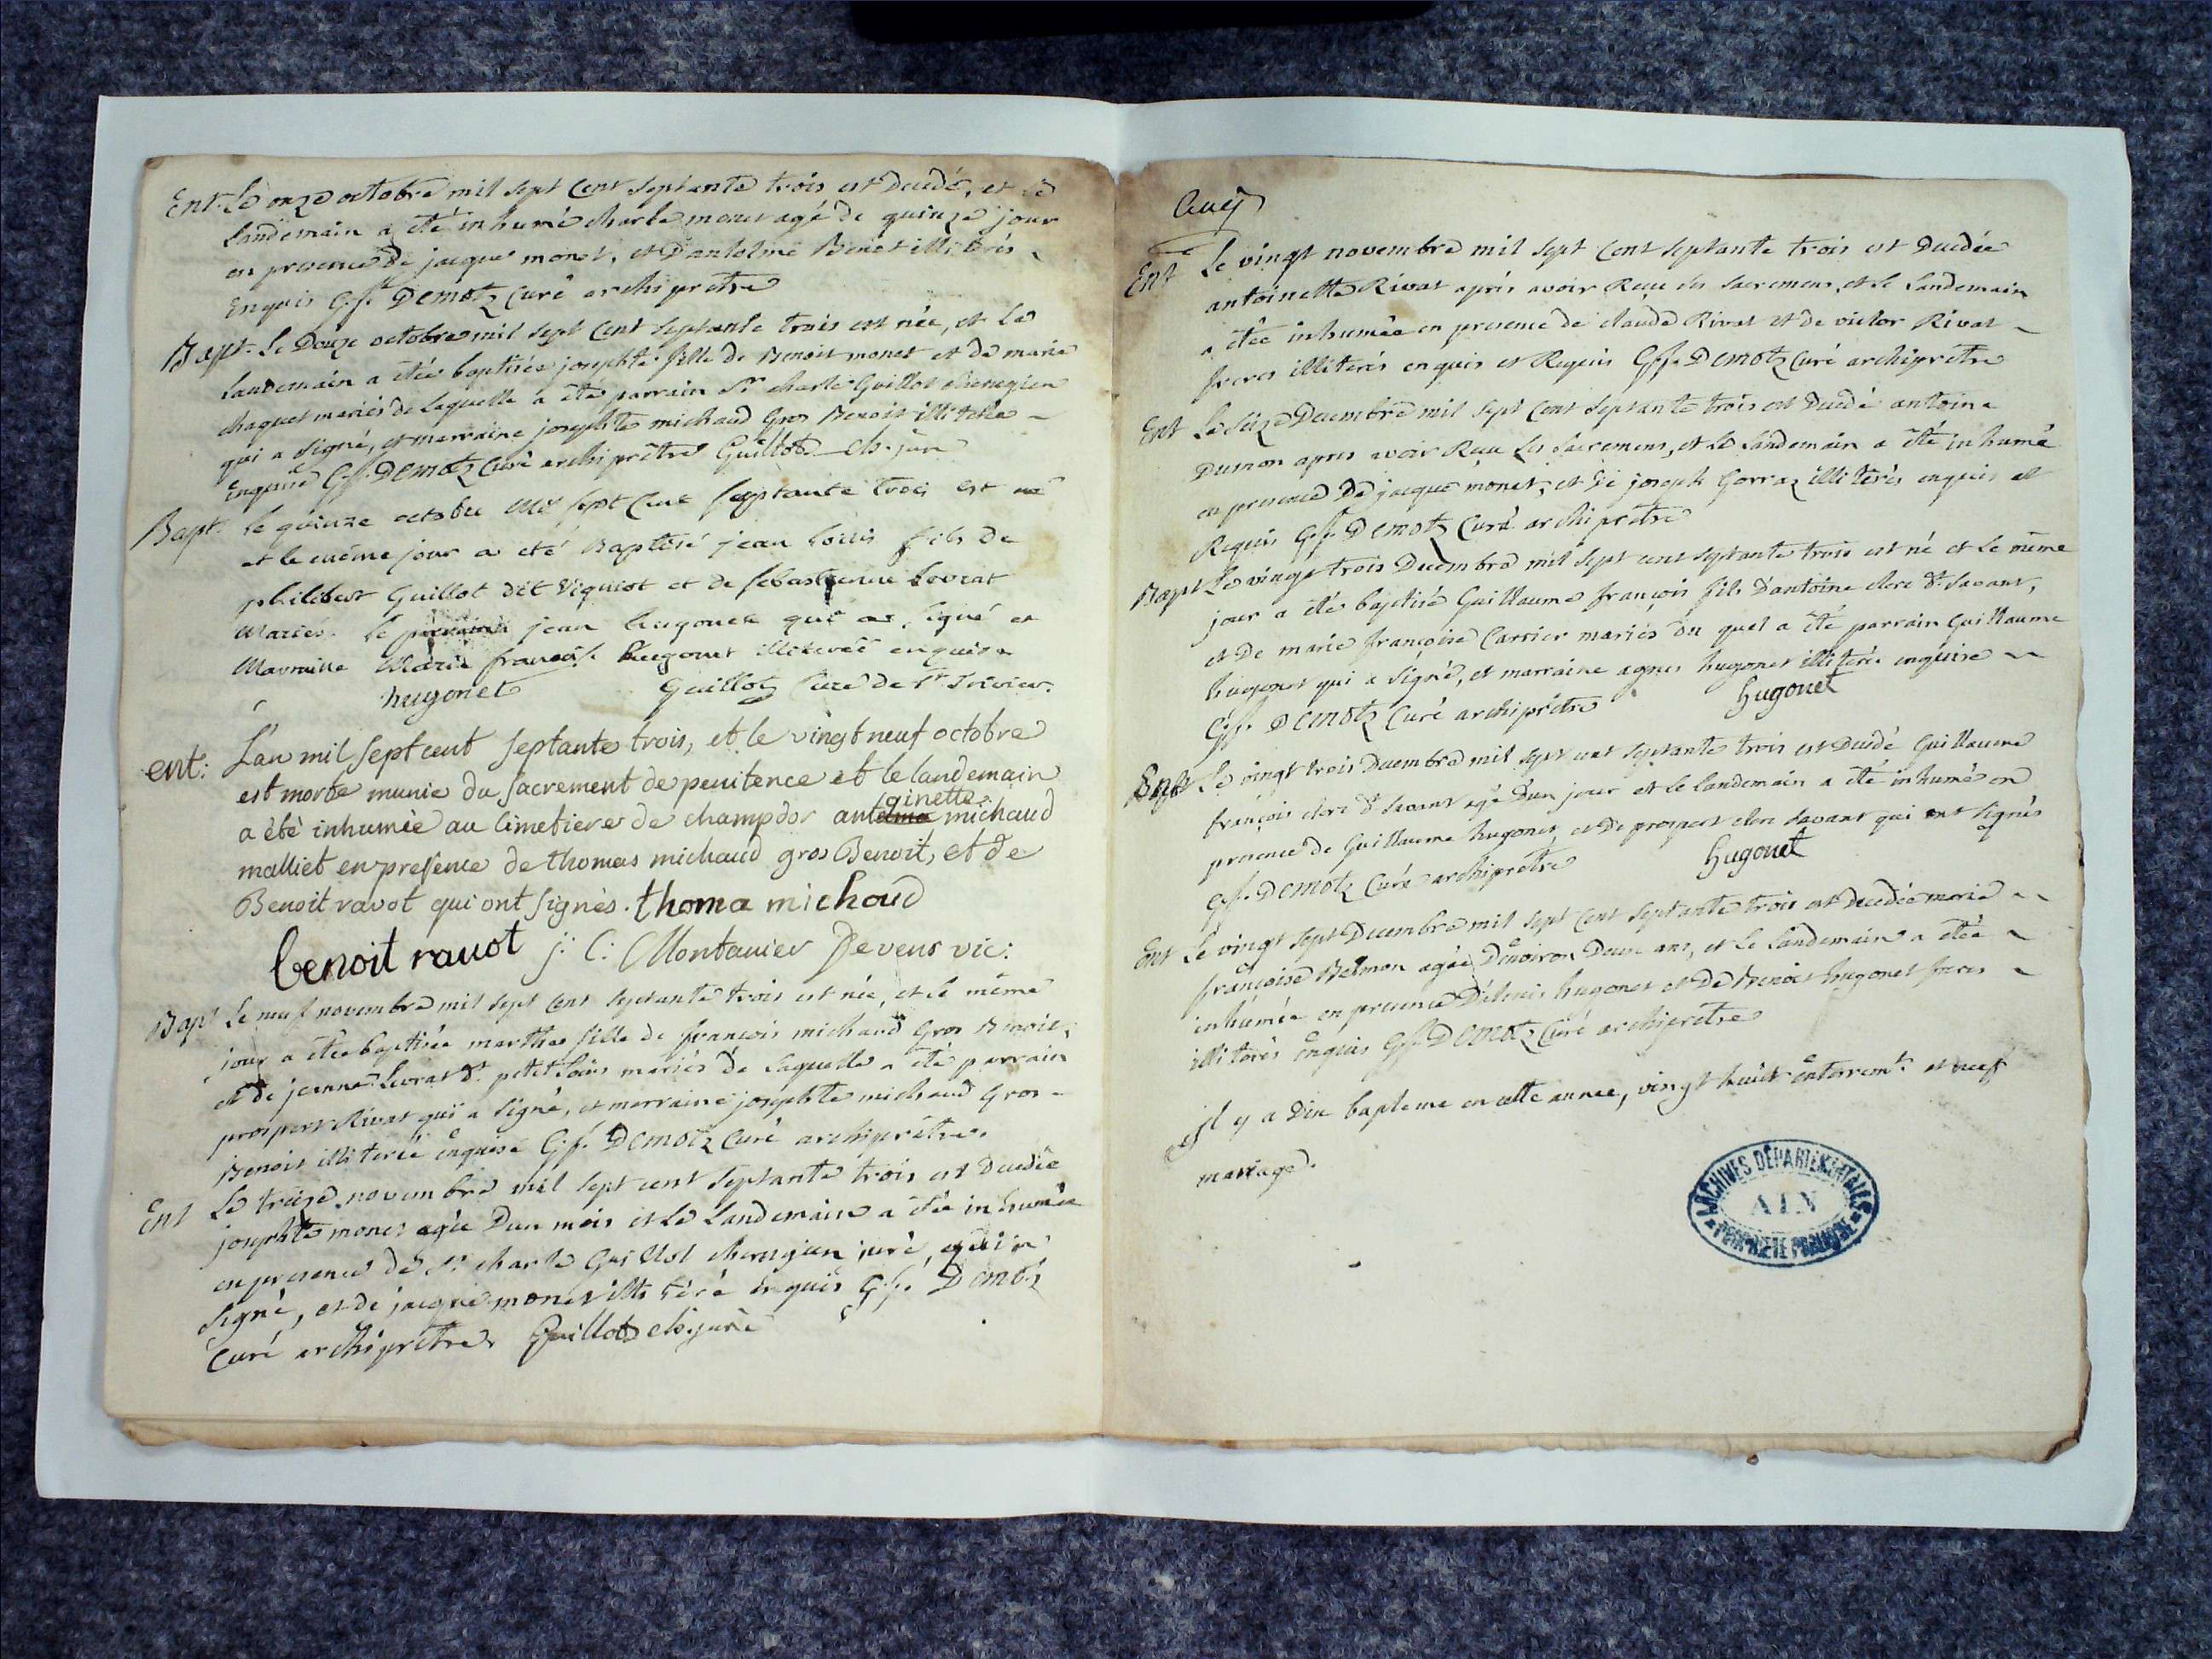 Ent. Le onze octobre mil sept cent septante trois est decedé, et le
landemain a été inhumé charle monet agé de quinze jour
en presence de jacque monet, et d'antelme Benet illiterés
Enquis G. f. Demotz curé archiprétre
Bapt. Le douze octobre mil sept cent septante trois est née, et le
landemain a étée baptisée josephte fille de Benoit monet et de marie
chaquet mariés de laquelle a été parrain Sr. charle Guillot chirurgien
qui a signé, et marraine josephte michaud Gros Benoit illiterée
enquise G. f. Demotz curé archiprétre Guillot ch. juré
Bapt. le quinze octobre mil sept cent septante trois est né
et le même jour a été Baptisé jean louis fils de
philibert Guillot dit Viquiot et de sebastienne Levrat
Mariés. le parrain jean hugonet qui a signé et
Marraine Marie françoise hugonet illiterée enquise
hugonet Guillot Curé de St Trivier.
ent: L'an mil sept cent septante trois, et le vingt neuf octobre
est morte munie du sacrement de penitence et le landemain
a été inhumée au cimetiere de champdor antoinette michaud
malliet en presence de thomas michaud gros Benoit, et de
Benoit ravot qui ont signés. thoma michaud
benoit rauot j: C: Montanier Devens vic:
Bapt Le neuf novembre mil sept cent septante trois est née, et le même
jour a étée baptisée marthe fille de françois michaud Gros Benoit,
et de jeanne Levrat dt. petit Loüis mariés de laquelle a été parrain
prospert Rivat qui a signé, et marraine josephte michaud Gros
Benoit illiterée enquise G. f. Demotz curé archiprétre.
Ent Le treize novembre mil sept cent septante trois est decedée
josephte monet agée d'un mois et le landemain a étée inhumée
en presence de Sr. charle Guillot chirurgien juré, qui a
signé, et de jacque monet illiteré enquis G. f. Demotz
curé archiprétre Guillot ch. juré
Ent Le vingt novembre mil sept cent septante trois est decedée
antoinette Rivat aprés avoir Reçu les sacremens, et le landemain
a étée inhumée en presence de claude Rivat et de victor Rivat
freres illiterés enquis et Requis G. f. Demotz curé archiprétre
Ent Le seize Decembre mil sept cent septante trois est decedé antoine
Dumon apres avoir Reçu les sacremens, et le landemain a été inhumé
en presence de jacque monet, et de joseph Gorraz illiterés enquis et
Requis G. f. Demotz curé archiprétre
Bapt Le vingt trois Decembre mil sept cent septante trois est né et le même
jour a été baptisé Guillaume françois fils d'antoine clerc dt. savant,
et de marie françoise Carrier mariés du quel a été parrain Guillaume
hugonet qui a signé, et marraine agnes hugonet illiterée enquise
G. f. Demotz curé archiprétre hugonet
Le vingt trois Decembre mil sept cent septante trois est decedé Guillaume
françois clerc dt. savant agé d'un jour et le landemain a été inhumé en
presence de Guillaume hugonet, et de prospert clerc savant qui ont signés
G. f. Demotz curé archiprétre hugonet
Ent Le vingt sept Decembre mil sept cent septante trois est decedée marie
françoise agée d'environ deux ans, et le landemain a étée
inhumée en presence hugonet et de Benoit hugonet freres
illiterés enquis G. f. Demotz curé archiprétre
Il y a dix bapteme en cette année, vingt huit enterremt. et neuf
mariage.
ARCHIVES DÉPARTEMENTALES
AIN
PROPRIÉTÉ PUBLIQUE